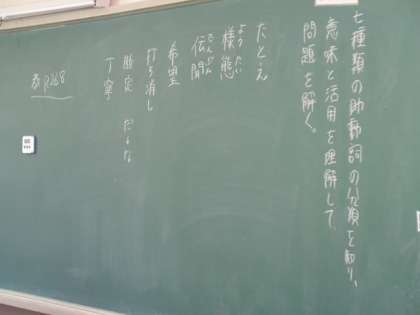 七種類の助動詞の分類を知り、
意味と活用を理解して
問題を解く。
たとえ
様態
ようたい
伝聞
でんぶん
希望
打ち消し
断定 だ・な
丁寧
教P268